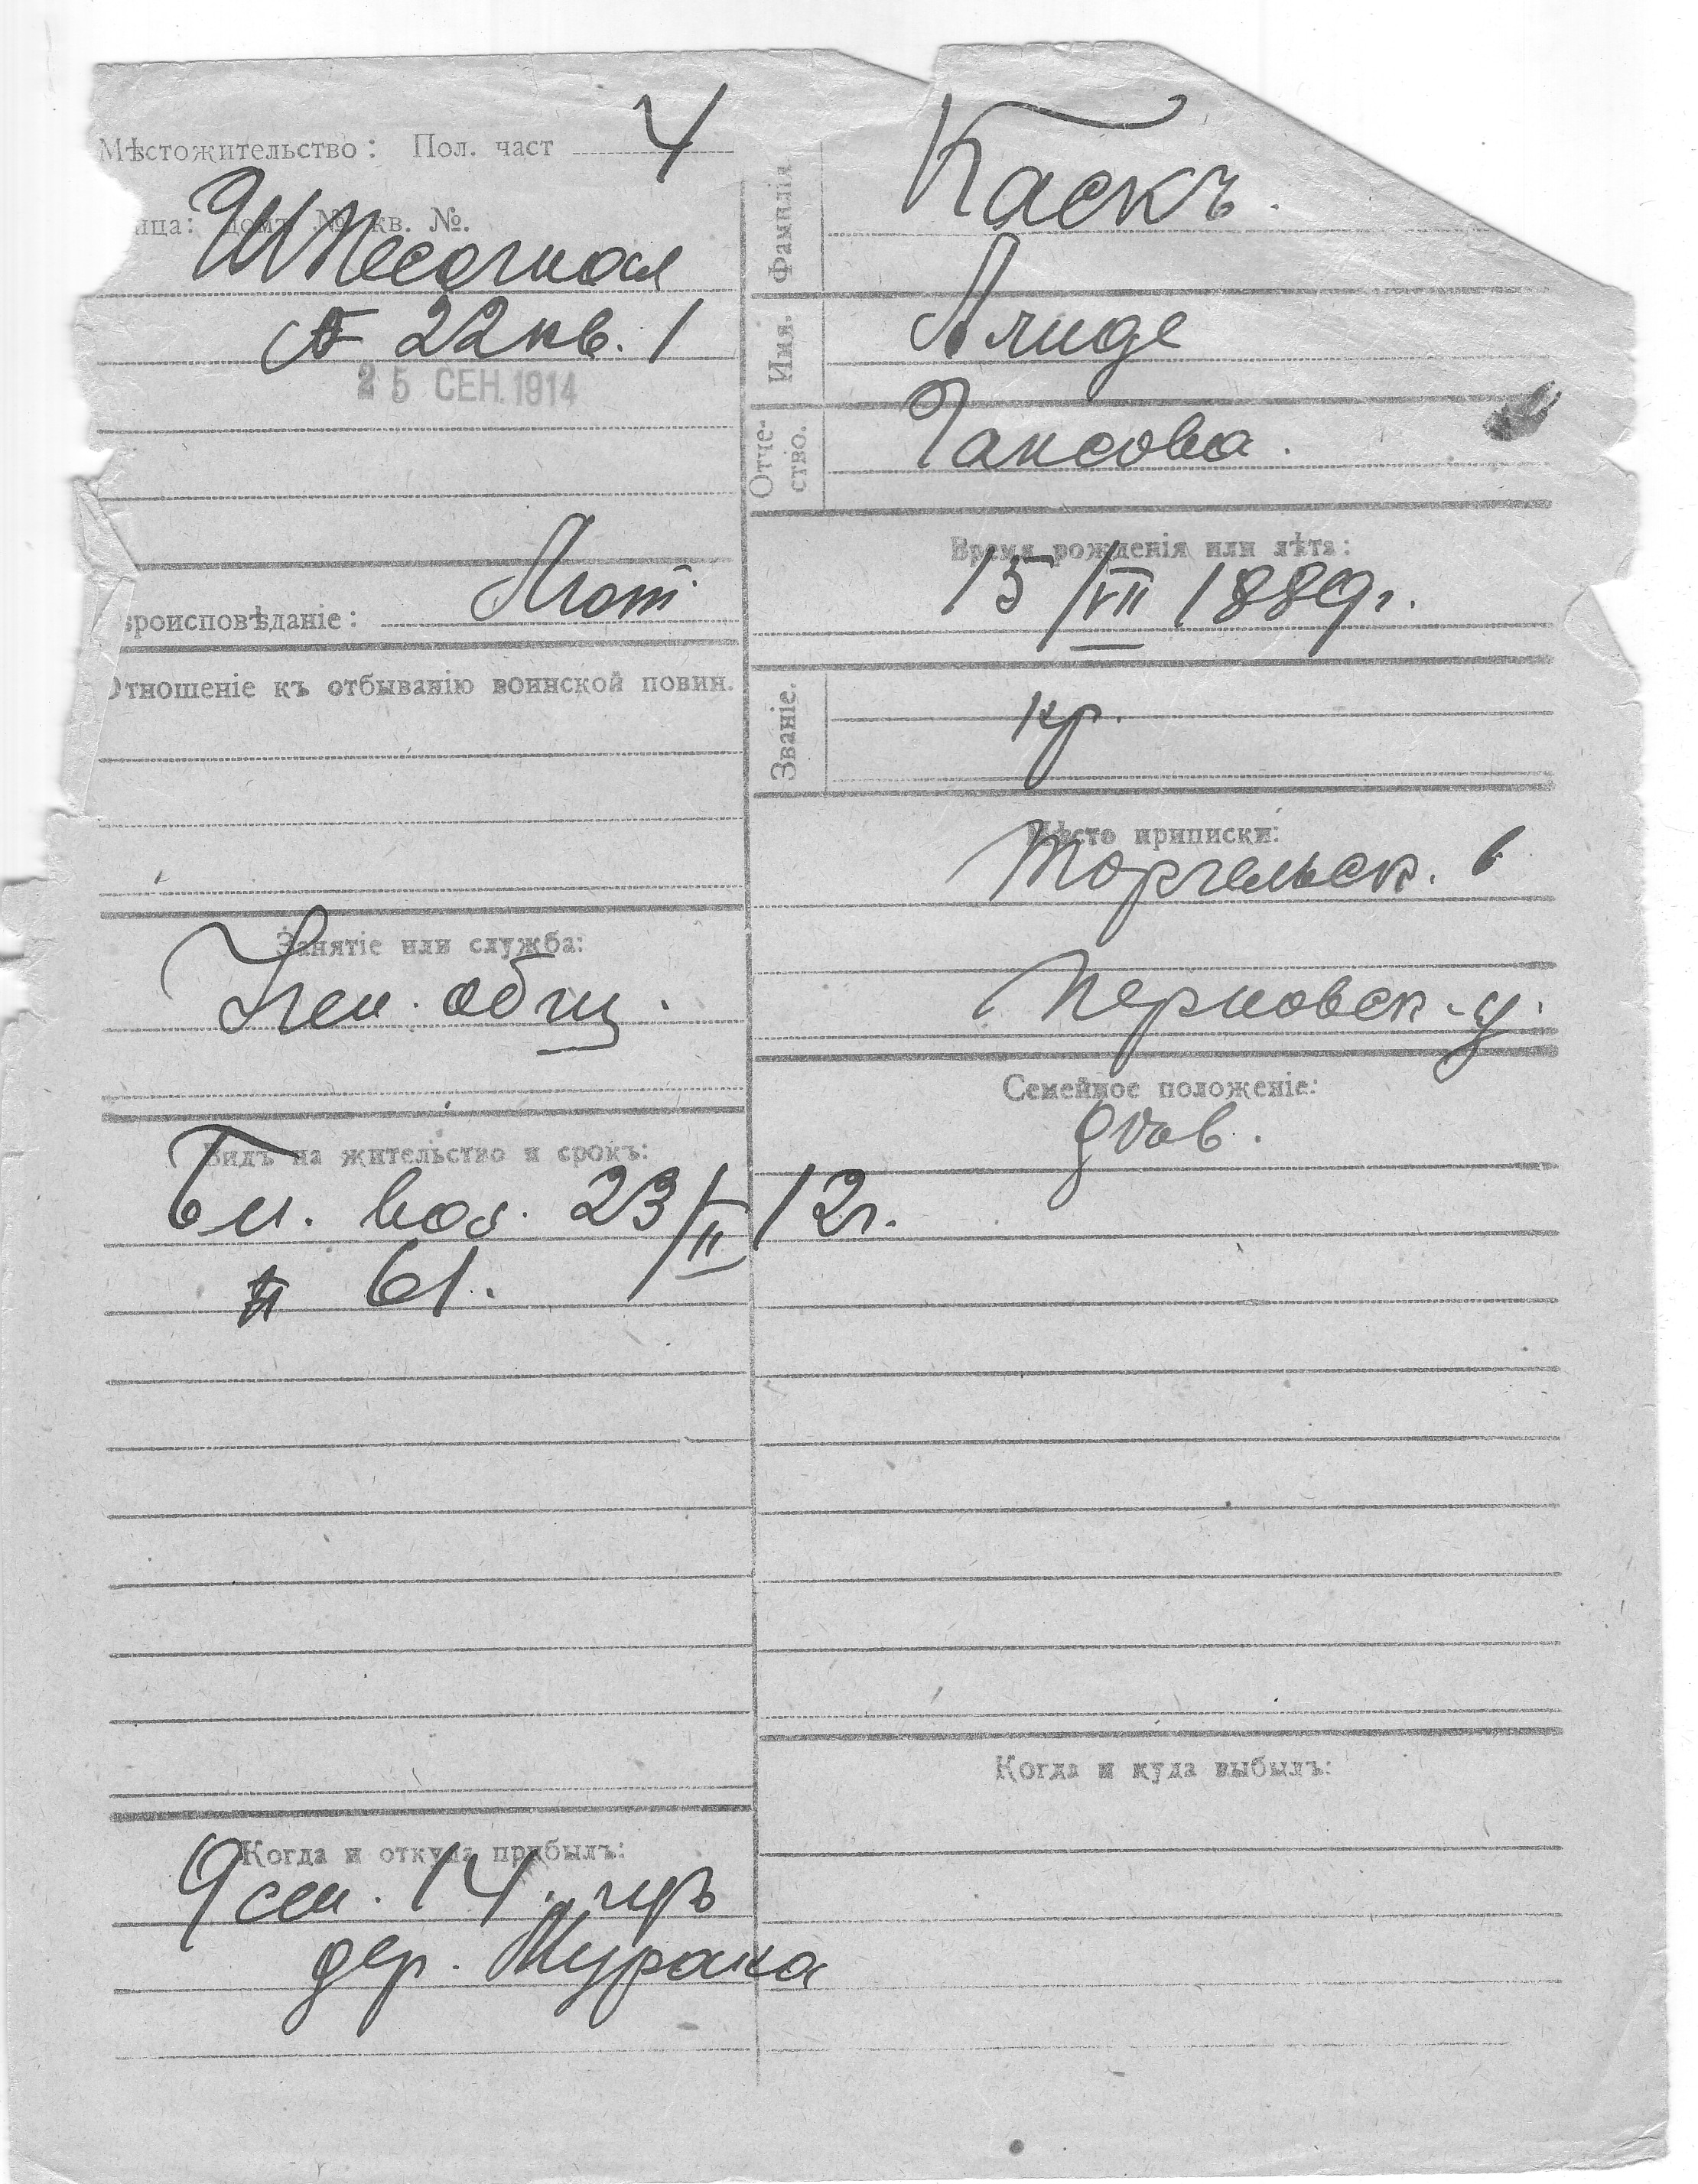 Мѣстожительство: Пол. част 4
ица: домъ № кв. №.
Ш Песочная
№ 22 кв. 1
25 СЕН. 1914
роисповѣданіе: Лют
Отношеніе къ отбыванію воинской повин.
Занятіе или служба:
общ.
Видъ на жительство и срокъ:
Бл. вол. 23/II 12 г.
№ 61.
Когда и откуда прибылъ:
9 сен. 14. изъ
дер. Мурака
Фамилія Каскъ.
Имя. Алиде
Отче-
ство. Гансова.
Время рожденія или лѣта:
15/VII 1889 г.
Званіе. кр.
Мѣсто приписки:
Торгельск. в
Перновск. у.
Семейное положеніе:
Когда и куда выбылъ: